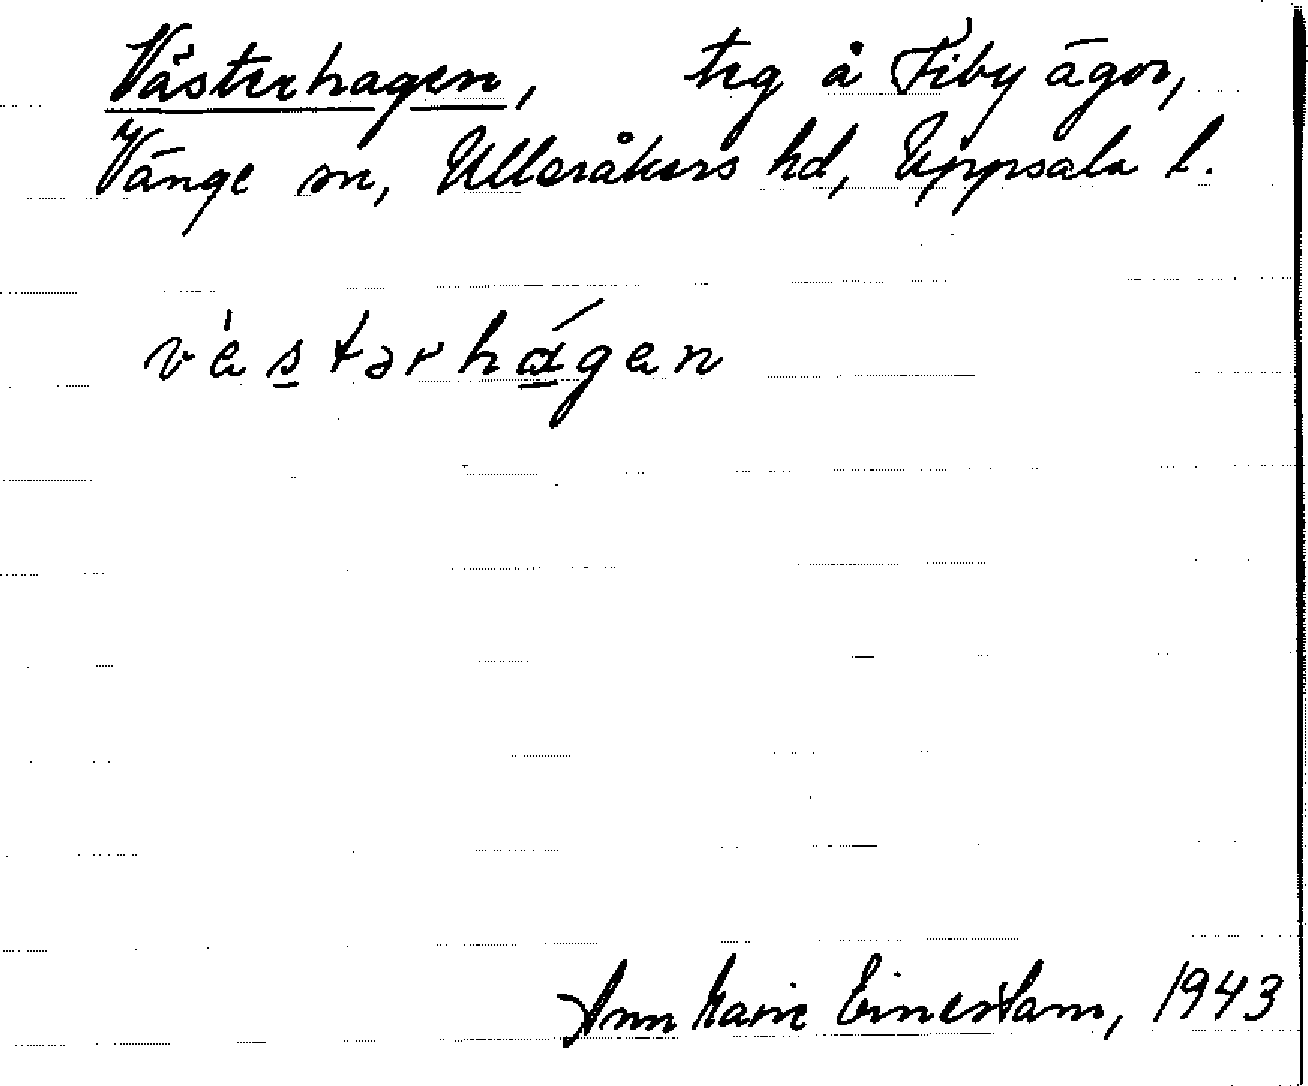 Västerhagen, teg å Fiby ägor,
Vänge sn, Ulleråkers hd, Uppsala l.
vèstərhágen
Ann Marie Einerstam, 1943